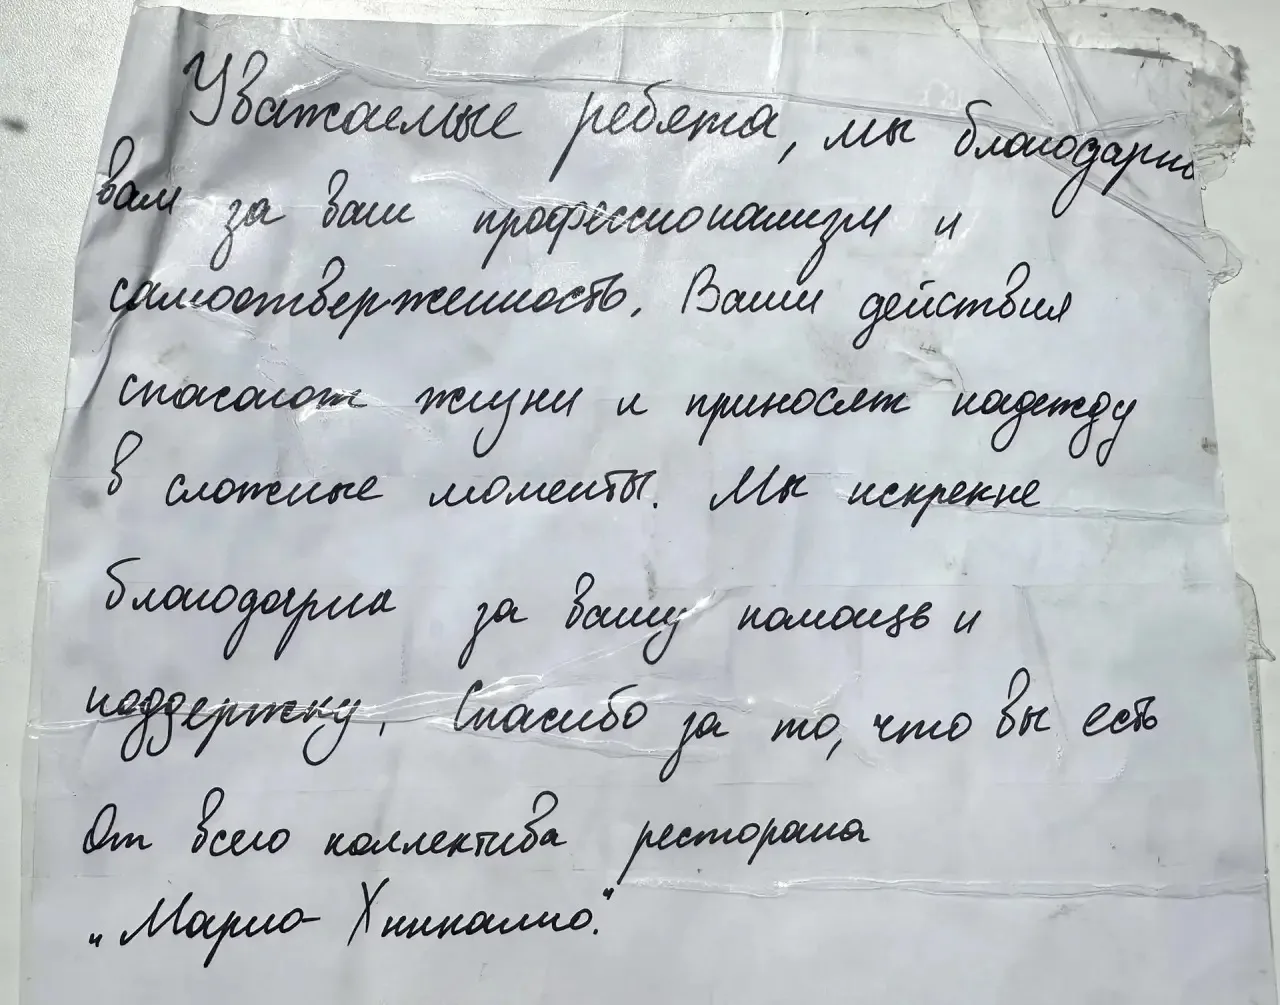 Уважаемые ребята, мы благодарны
вам за ваш профессионализм и
самоотверженность. Ваши действия
спасают жизни и приносят надежду
в сложные моменты. Мы искренне
благодарны за вашу помощь и
поддержку. Спасибо за то, что вы есть
От всего коллектива ресторана
„Марио-Хинкалио."